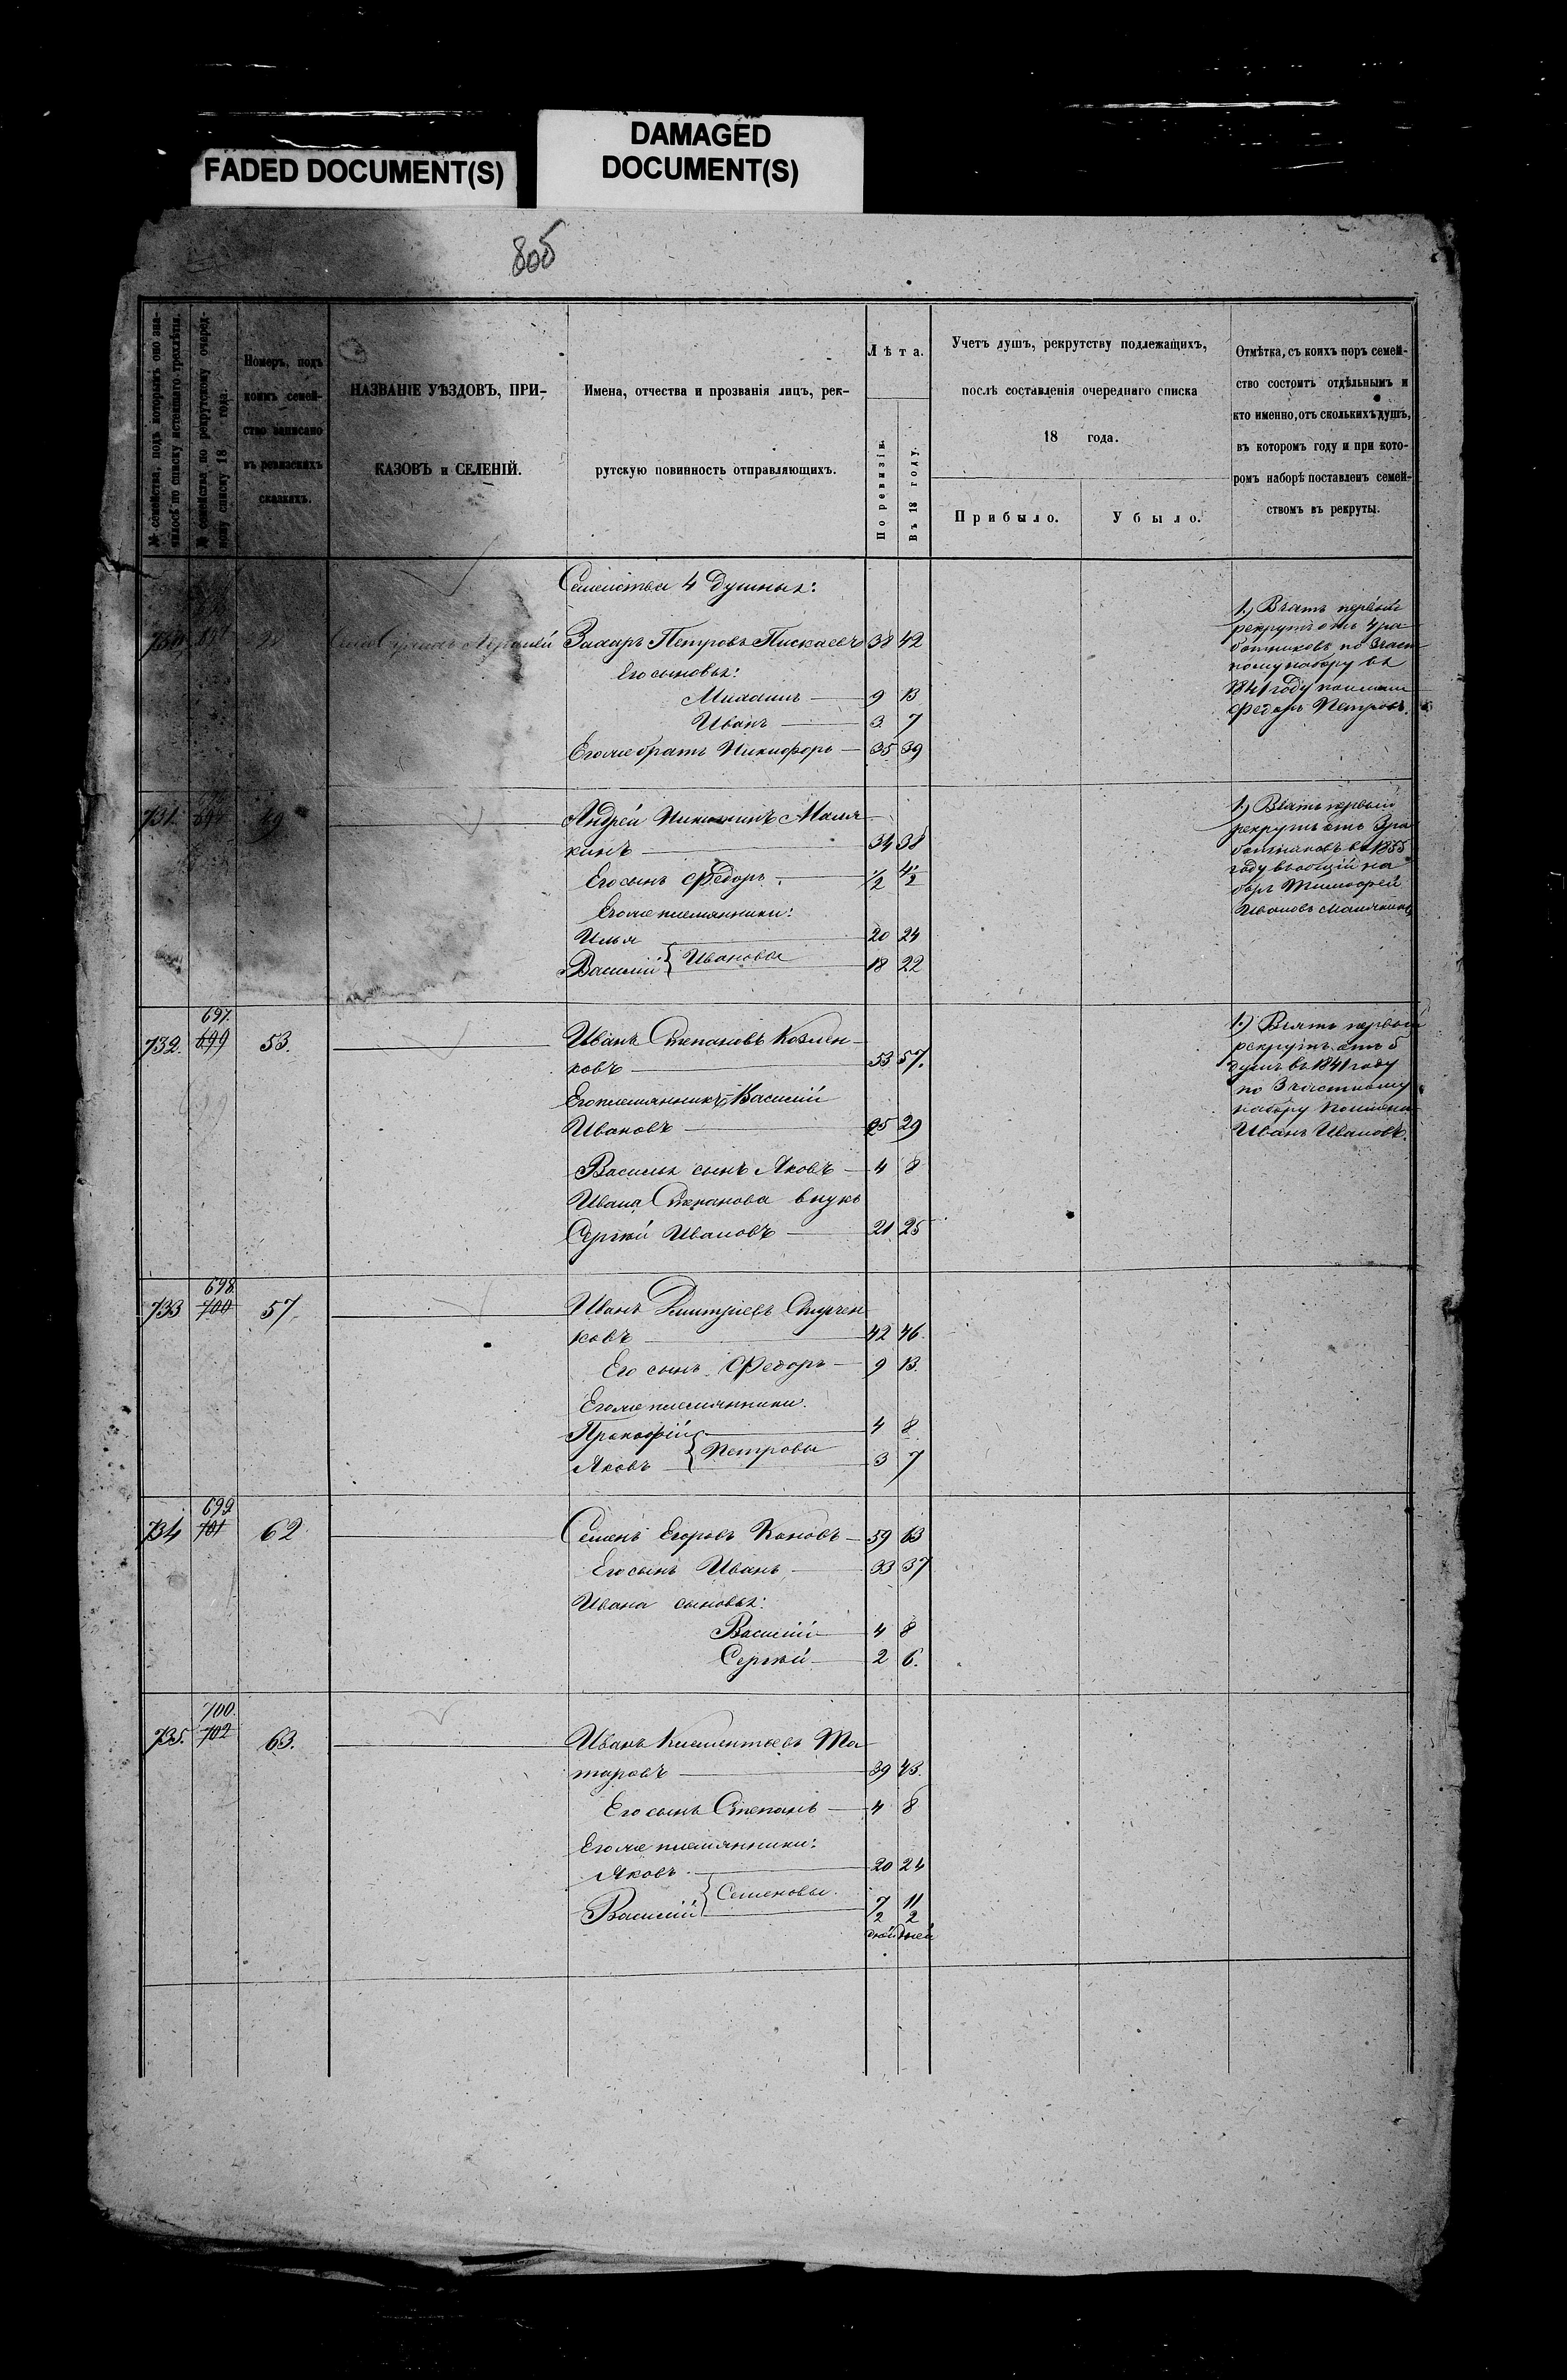 DAMAGED
DOCUMENT(S)
FADED DOCUMENT(S)
805
№ семейства, подъ которымъ оно зна-
чилось по списку истекшаго трехлѣтія.
№ семейства по рекрутскому очеред-
ному списку 18 года.
Номеръ, подъ
коимъ семей-
ство записано
въ ревизскихъ
сказкахъ.
НАЗВАНІЕ УѢЗДОВЪ, ПРИ-
КАЗОВЪ и СЕЛЕНІЙ.
Имена, отчества и прозванія лицъ, рек-
рутскую повинность отправляющихъ.
Лѣта.
По ревизіи.
Въ 18 году.
Учетъ душъ, рекрутству подлежащихъ,
послѣ составленія очереднаго списка
18 года.
Прибыло.
Убыло.
Отмѣтка, съ коихъ поръ семей-
ство состоитъ отдѣльнымъ и
кто именно, отъ сколькихъ душъ,
въ котором году и при кото-
ромъ наборѣ поставленъ семей-
ствомъ въ рекруты.
Семейства 4 душныя:
730. Захаръ Петровъ Пискаевъ 38 42
Его сыновья:
Михаилъ 9 13
Иванъ 3 7
Его же братъ Никифоръ 35 39
1.) Взятъ первый
рекрутъ отъ 4 ра-
ботниковъ по 3 част
ному набору въ
1841 году
Федоръ Петровъ.
731. 69 Андрей Маля-
кинъ 34 38
Его сынъ Федоръ 1/2 4 1/2
Его же племянники:
Илья 20 24
Василий } Ивановы 18 22
1.) Взятъ первый
рекрутъ отъ 3 ра
ботниковъ въ 1855
году въ общій на
боръ Тимофей
Ивановъ Малякинъ
697.
732. 699 53. Иванъ Степановъ Козлен-
ковъ 53 57.
Его племянникъ Василий
Ивановъ 25 29
Василья сынъ Яковъ 4 8
Ивана Степанова внукъ
Сергѣй Ивановъ 21 25
1.) Взятъ первый
рекрутъ отъ 5
душъ въ 1841 году
по 3 частному
набору
Иванъ Ивановъ.
698.
733 700 57. Иванъ Дмитріевъ
ковъ 42 46.
Его сынъ Федоръ 9 13.
Его же племянники.
Прокофій 4 8
Яковъ } Петровы 3 7
699.
734 701 62 Семенъ Егоровъ Коновъ 59 63
Его сынъ Иванъ 33 37
Ивана сыновья:
Василий 4 8
Сергѣй 2 6.
700.
735. 702 63. Иванъ Климентьевъ Та
таровъ 39 43.
Его сынъ Степанъ 4 8
Его же племянники:
Яковъ 20 24
Василий } Семеновы. 7 11
2 2
дней дней